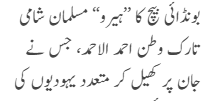 بونڈائی بیچ کا ”ہیرو“ مسلمان شامی
تارک وطن احمد الاحمد، جس نے
جان پر کھیل کر متعدد یہودیوں کی